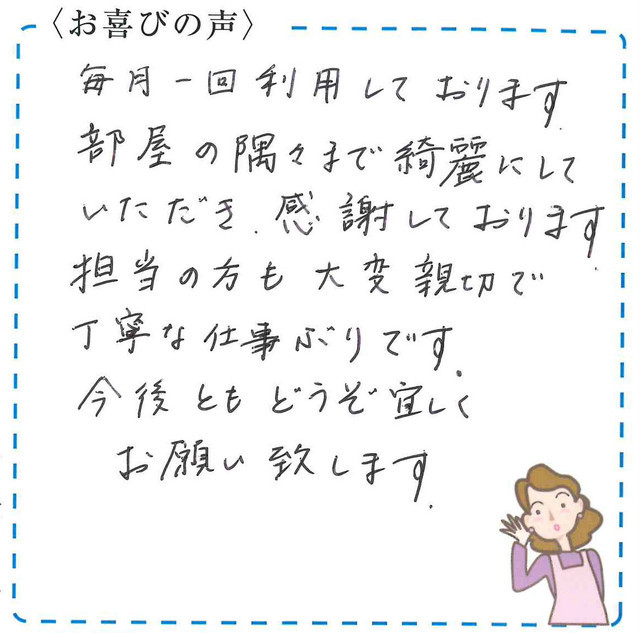 〈お喜びの声〉
毎月一回利用しております.
部屋の隅々まで綺麗にして
いただき、感謝しております.
担当の方も大変親切で
丁寧な仕事ぶりです.
今後ともどうぞ宜しく
お願い致します.